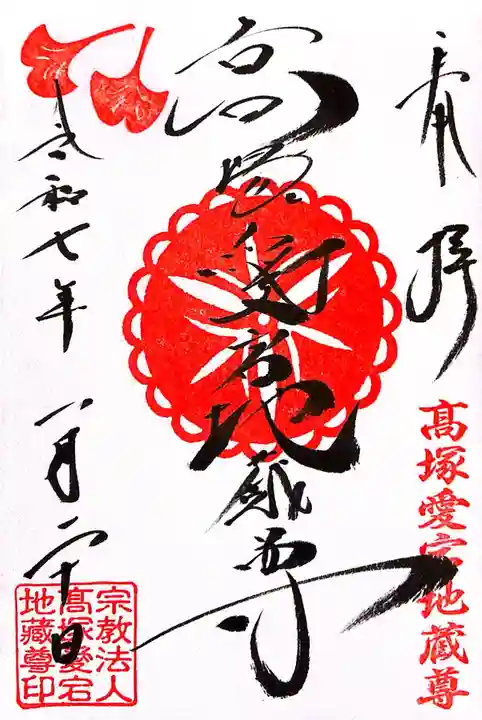 奉拝
髙塚愛宕地蔵尊
高塚愛宕地蔵尊
令和七年 一月二十日
宗教法人
髙塚愛宕
地藏尊印